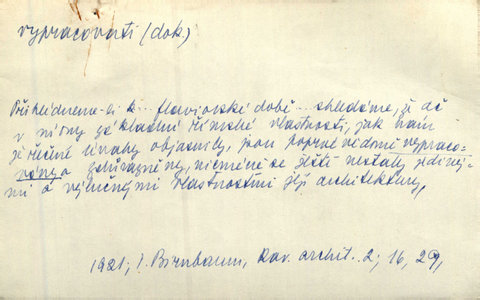 vypracovati (dok.)
Přihlédneme-li k... flaviovské době... shledáme, že ač
v ní ony základní římské vlastnosti, jak nám
je řečné úvahy objasnily, jsou poprvé vědomě vypraco-
vány a zdůrazněny, nicméně se ještě nestaly jediný-
mi a výlučnými vlastnostmi její architektury,
1921, J. Birnbaum, Rav. archit. 2, 16, 29,